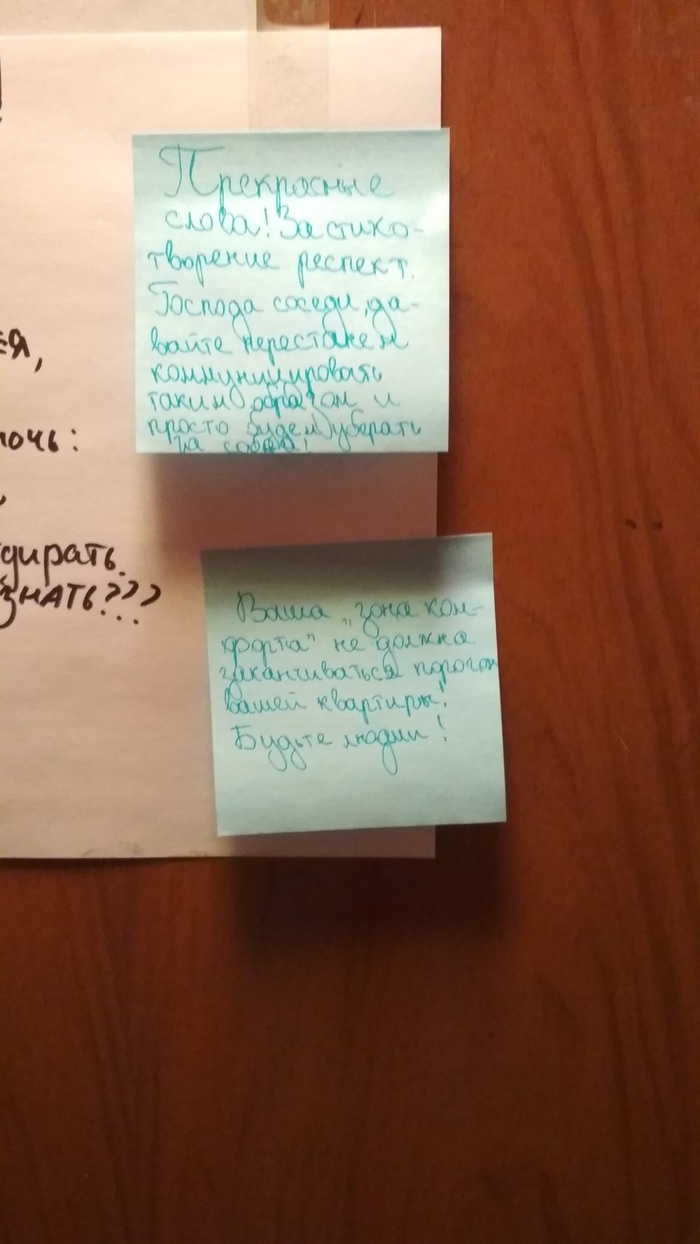 ея,
ночь:
дирать.
знать???
Прекрасные
слова! За стихо-
творение респект.
Господа соседи, да-
вайте перестанем
коммуницировать
таким образом и
просто будем уберать
за собой!
Ваша „зона ком-
форта" не должна
заканчиваться порогом
вашей квартиры!
Будьте людми!